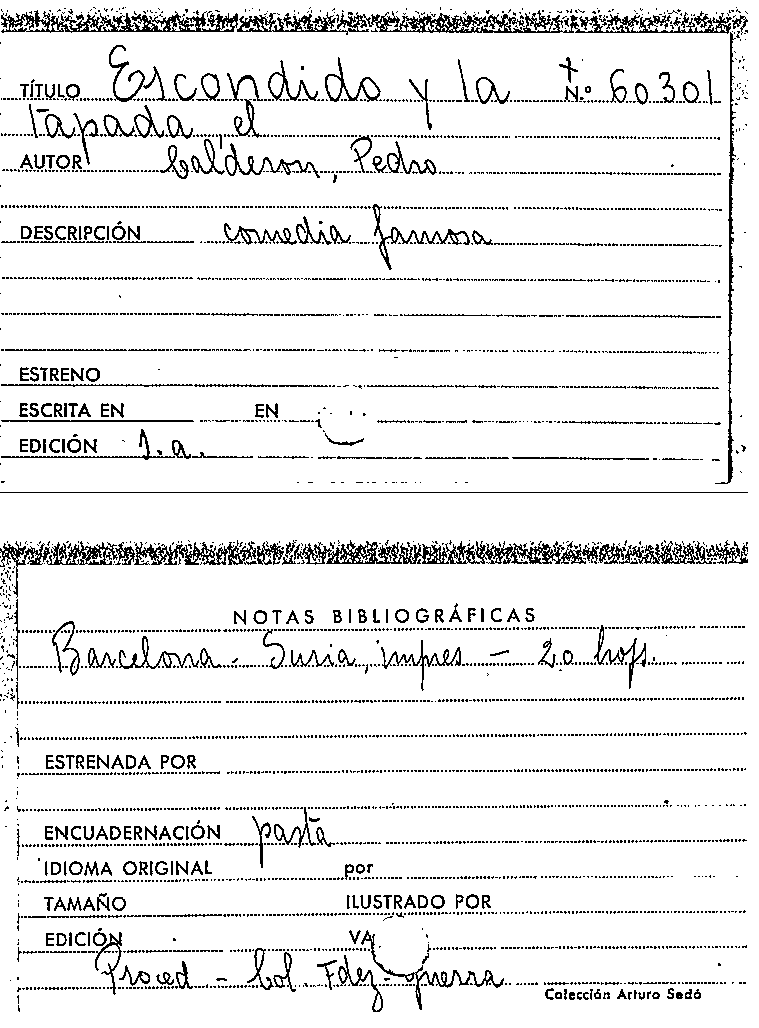 TÍTULO Escondido y la + N.º 60301
Tapada, el
AUTOR Calderon, Pedro
DESCRIPCIÓN comedia famosa
ESTRENO
ESCRITA EN EN
EDICIÓN 1.a.
NOTAS BIBLIOGRÁFICAS
Barcelona - Suria, impres - 20 hojs.
ESTRENADA POR
ENCUADERNACIÓN pasta
IDIOMA ORIGINAL por
TAMAÑO ILUSTRADO POR
EDICIÓN VA
Proced - Col. Fdez-guerra
Colección Arturo Sedó